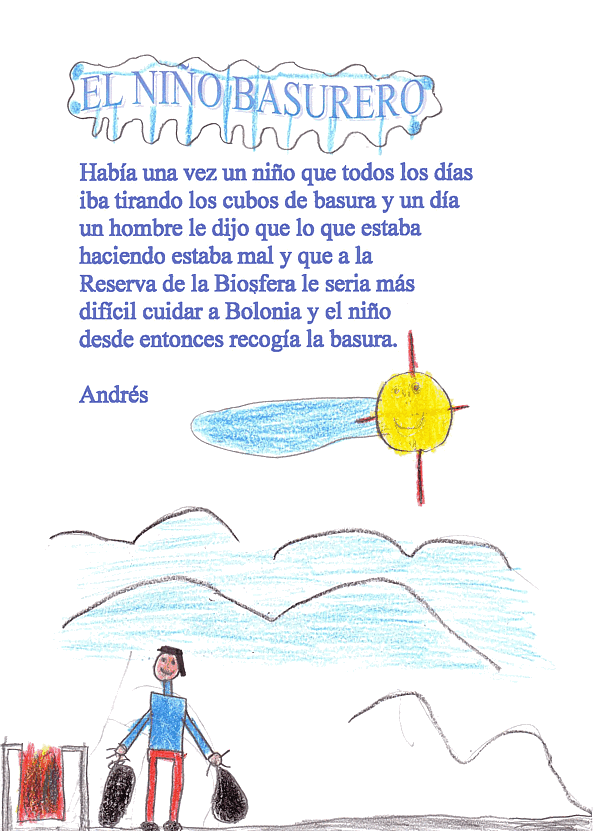 EL NIÑO BASURERO
Había una vez un niño que todos los días
iba tirando los cubos de basura y un día
un hombre le dijo que lo que estaba
haciendo estaba mal y que a la
Reserva de la Biosfera le seria más
difícil cuidar a Bolonia y el niño
desde entonces recogía la basura.
Andrés